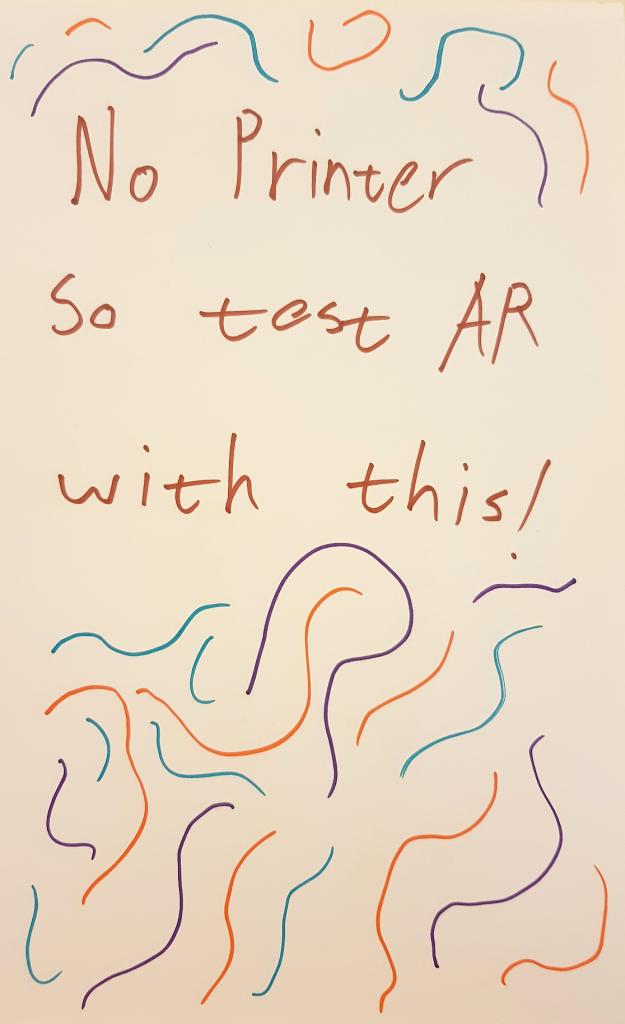 No Printer
So test AR
with this!